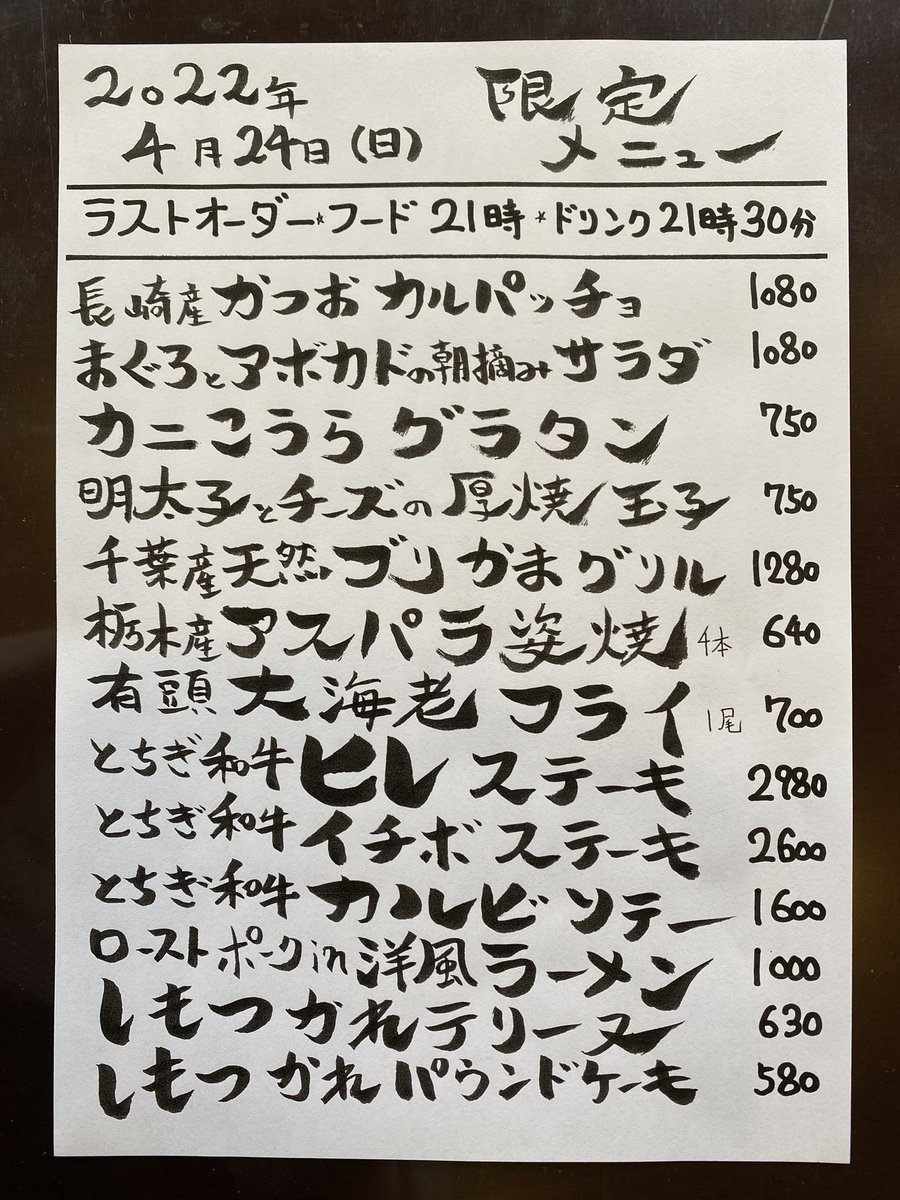 2022年
4月24日(日)
限定
メニュー
ラストオーダー★フード21時★ドリンク21時30分
長崎産かつおカルパッチョ 1080
まぐろとアボカドの朝摘みサラダ 1080
カニこうらグラタン 750
明太子とチーズの厚焼玉子 750
千葉産天然ブリかまグリル 1280
栃木産アスパラ姿焼 4本 640
有頭大海老フライ 1尾 700
とちぎ和牛ヒレステーキ 2980
とちぎ和牛イチボステーキ 2600
とちぎ和牛カルビソテー 1600
ローストポークin洋風ラーメン 1000
しもつかれテリーヌ 630
しもつかれパウンドケーキ 580